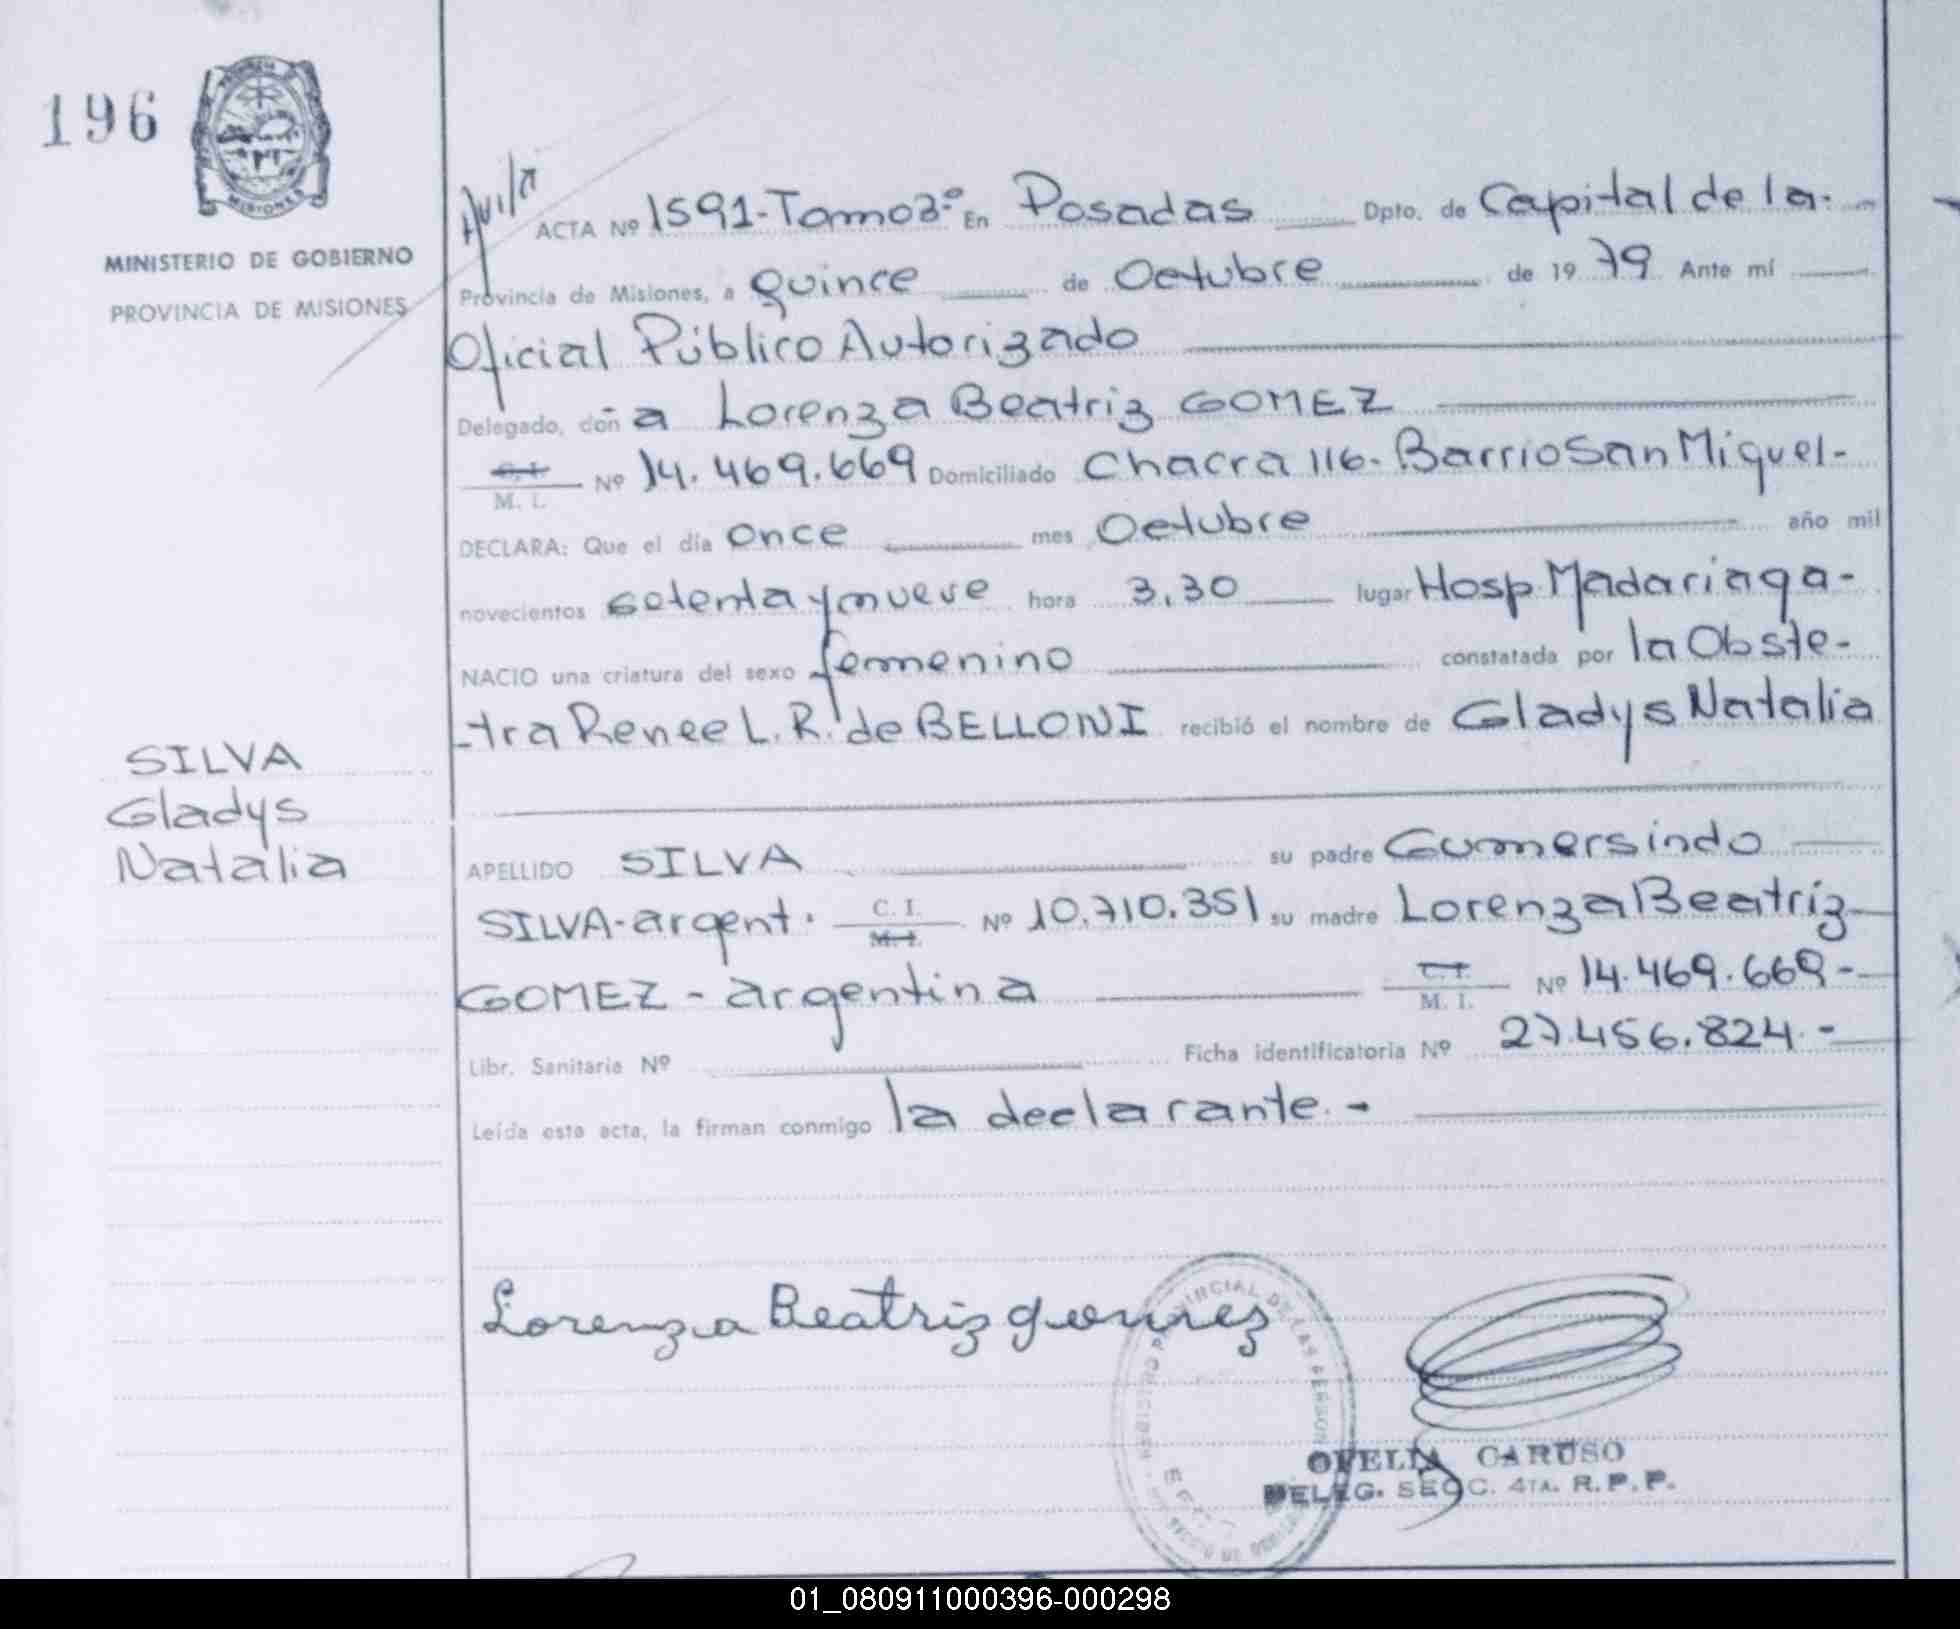 196
MISIONES
MINISTERIO DE GOBIERNO
PROVINCIA DE MISIONES
ACTA Nº 1591-Tomo 3º En Posadas Dpto. de Capital de la.-
Provincia de Misiones, a quince de Octubre de 19 79 Ante mí
Oficial Público Autorizado
Delegado, doña Lorenza Beatriz GOMEZ
C.I. M. I. Nº 14.469.669 Domiciliado Chacra 116-Barrio San Miguel-
DECLARA: Que el día once mes Octubre año mil
novecientos setenta y nueve hora 3,30 lugar Hosp. Madariaga-
NACIO una criatura del sexo femenino constatada por la Obste-
-tra Renee L. R. de BELLONI recibió el nombre de Gladys Natalia
SILVA
Gladys
Natalia
APELLIDO SILVA su padre Gumersindo
SILVA-argent. C. I. M. I. Nº 10.710.351 su madre Lorenza Beatriz
GOMEZ - argentina C. I. M. I. Nº 14.469.669-
Libr. Sanitaria Nº Ficha identificatoria Nº 27.456.824.-
Leída esta acta, la firman conmigo la declarante.-
Lorenza Beatriz gomez
OFELIA CARUSO
DELEG. SECC. 4TA. R. P. P.
01_080911000396-000298